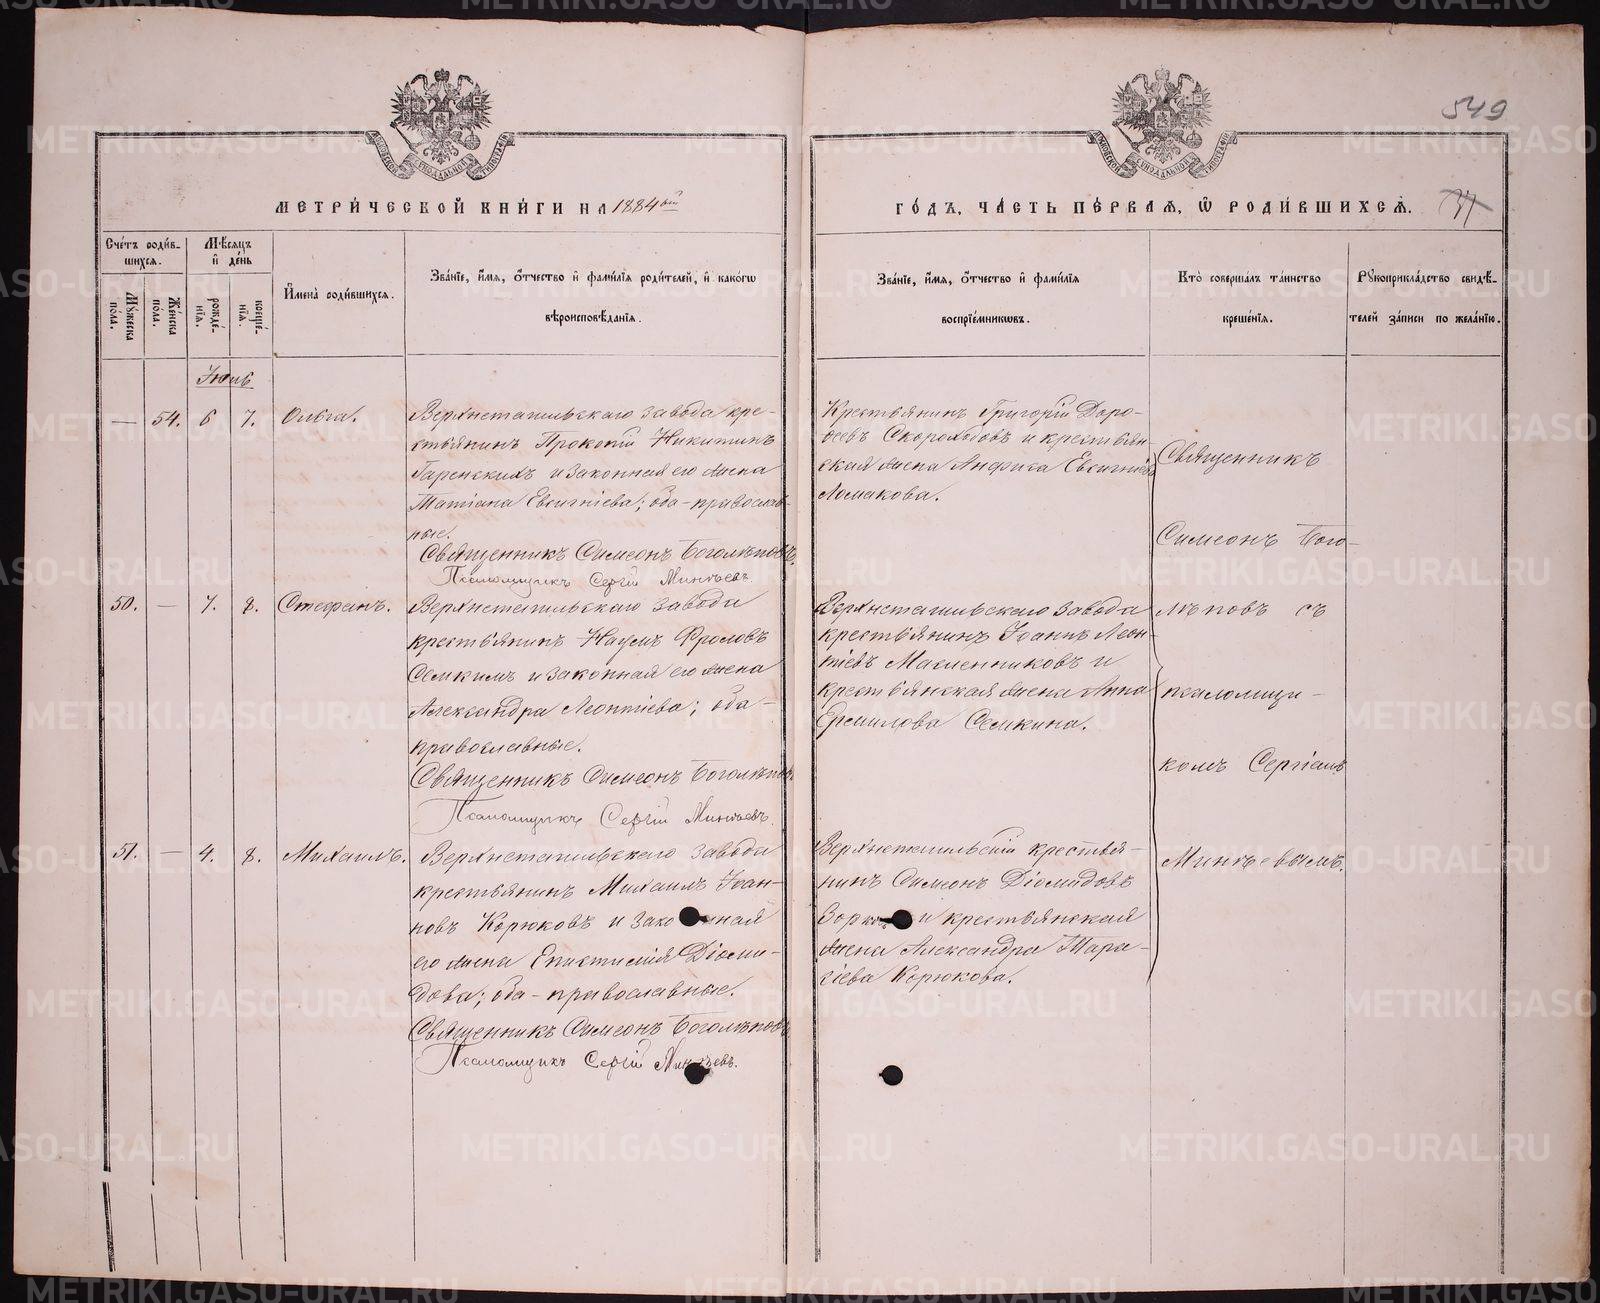 549
МЕТРИ́ЧЕСКОЙ КНИ́ГИ НА 1884 ый
ГО́ДЪ, ЧА́СТЬ ПЕ́РВАЯ, Ѿ РОДИ́ВШИХСЯ.
Сче́тъ роди́в-
шихся.
Му́жеска
по́ла.
Же́нска
по́ла.
Мѣ́сяцъ
и де́нь
рожде́-
нїя.
креще́-
нїя.
И́мена роди́вшихся.
Зва́нїе, и́мя, о́тчество и фами́лїя роди́телей, и како́гѡ
вѣроисповѣ́данїя.
Зва́нїе, и́мя, о́тчество и фами́лїя
воспрїе́мникѡвъ.
Кто̀ соверша́лъ та́инство
креще́нїя.
Рꙋкоприкла́дство свидѣ́-
телей за́писи по жела́нїю.
Іюнь
— 54. 6 7. Ольга.
Верхнетагильскаго завода кре-
стьянинъ Прокопій Никитинъ
Гаренскихъ и законная его жена
Татіана Евсигніева; оба - православ-
ные.
Священникъ Симеонъ Боголѣповъ.
Псаломщикъ Сергій Минѣевъ.
Крестьянинъ Григорій Доро-
ѳеевъ Скороходовъ и крестьян-
ская жена Анфиса Евсигніева
Ломакова.
50. — 7. 8. Стефанъ.
Верхнетагильскаго завода
крестьянинъ Наумъ Фроловъ
Семкинъ и законная его жена
Александра Леонтіева; оба -
православные.
Священникъ Симеонъ Боголѣповъ.
Псаломщикъ Сергій Минѣевъ.
Верхнетагильскаго завода
крестьянинъ Іоаннъ Леон-
тіевъ Масленниковъ и
крестьянская жена Анна
Ермилова Семкина.
51. — 4. 8. Михаилъ.
Верхнетагильскаго завода
крестьянинъ Михаилъ Іоан-
новъ Корюковъ и законная
его жена Епистимія Діоми-
дова; оба - православные.
Священникъ Симеонъ Боголѣповъ
Псаломщикъ Сергій Минѣевъ.
Верхнетагильскій крестья-
нинъ Симеонъ Діомидовъ
и крестьянская
жена Александра Тара-
сіева Корюкова.
Священникъ
Симеонъ Бого-
лѣповъ съ
псаломщи-
комъ Сергіемъ
Минѣевымъ.
METRIKI.GASO-URAL.RU